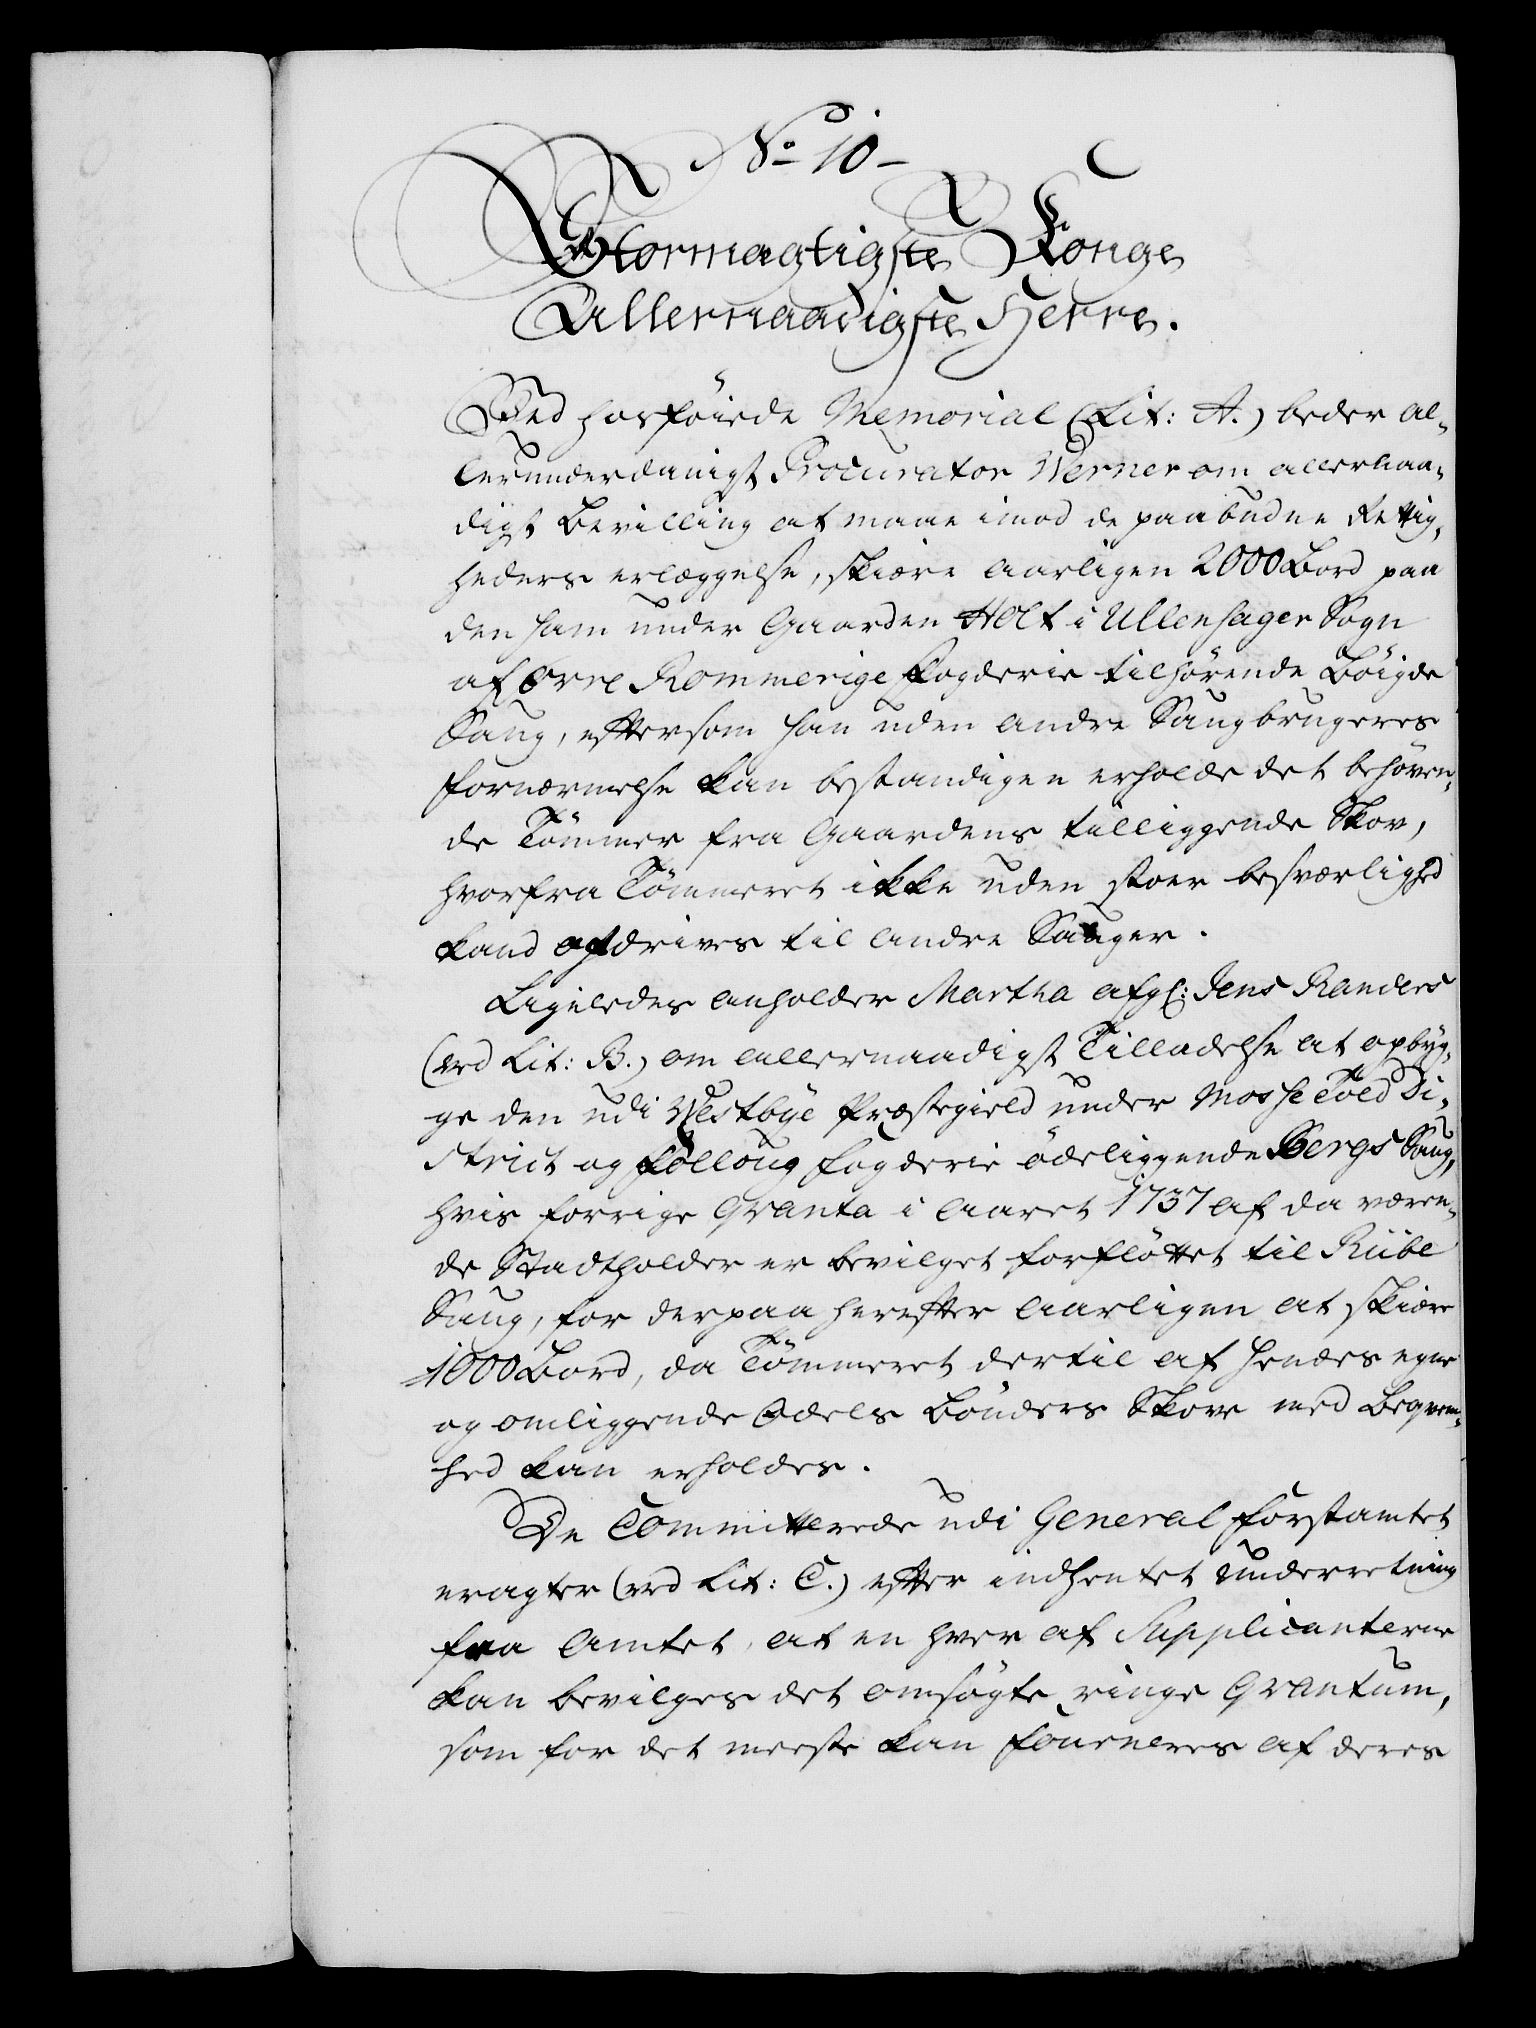 No 10
Stormægtigste Konge
Allernaadigste Herre.
Ved hosføiede Memorial (Lit: A.) beder al-
lerunderdanigst Procurator Werner om allernaa-
digst Bevilling at maae imod de paabudne Rettig-
heders erlæggelse, skiære aarligen 2000 Bord paa
den ham under Gaarden Holt i Ullensager Sogn
af Øvre Rommerige Fogderie tilhørende Bøigde
Saug, eftersom han uden andre Saugbrugeres
fornærmelse kan bestandigen erholde det behøven-
de Tømmer fra Gaardens tilliggende Skov,
hvorfra Tømmeret ikke uden stoer besværlighed
kand afdrives til andre Sauger.
Ligeledes anholder Martha afgl: Jens Randers
(ved Lit: B.) om allernaadigst Tilladelse at opbyg-
ge den udi Westbye Præstegield under Mosse Told Di-
strict og Folloug Fogderie ödeliggende Bergs Saug,
hvis forrige Qvanta i Aaret 1737 af da væren-
de Stadtholder er bevilget forfløttet til Riibe
Saug, for derpaa herefter aarligen at skiære
1000 Bord, da Tømmeret dertil af hendes egne
og omliggende Odels Bønders Skove med Beqvem-
hed kan erholdes.
De Committerede udi General Forstamtet
eragter (ved Lit: C.) efter indhentet underretning
fra Amtet, at en hver af Supplicanterne
kan bevilges det omsøgte ringe Qvantum,
som for det meeste kan fourneres af deres